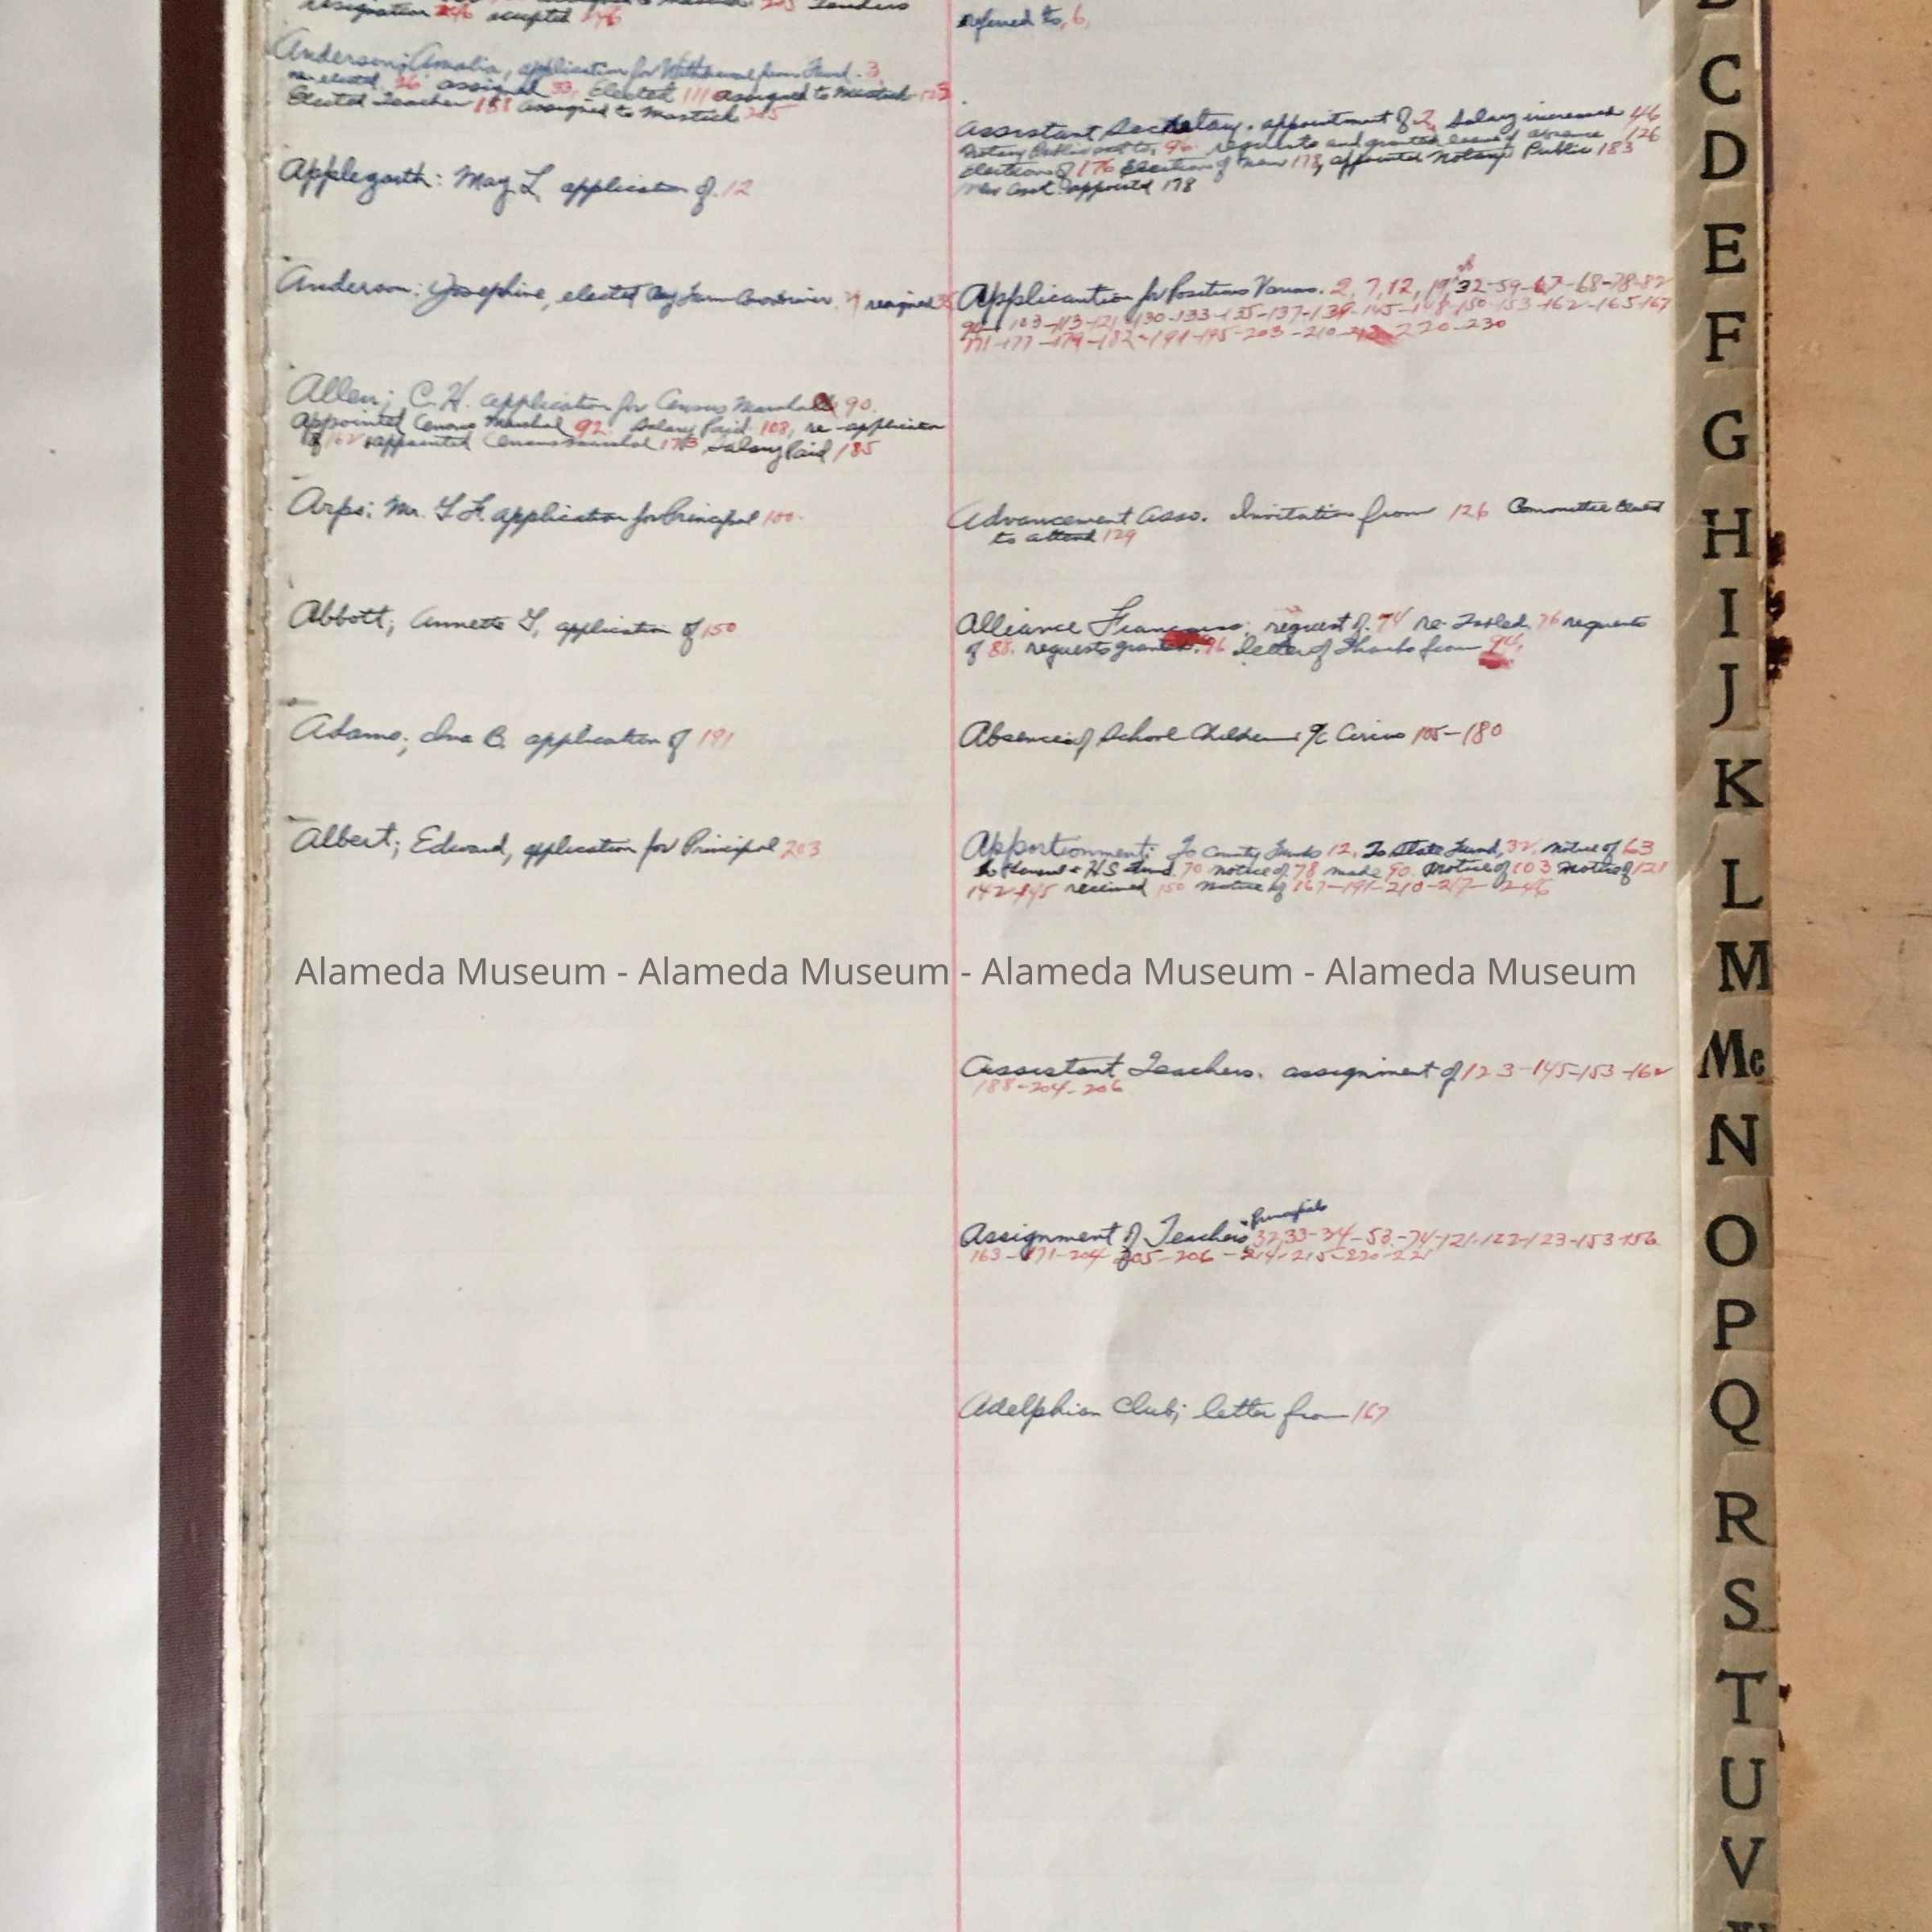 resignation 246 accepted 246
Anderson; Amalia, application for Withdrawal from Fund. 3,
re-elected 26 assigned 33, Elected 111 assigned to Mastick 123
Elected Teacher 188 assigned to Mastick 205
Applegarth: May L application of. 12
Anderson: Josephine, elected Bay Farm resigned
Allen; C.H. application for Census Marshall 90.
Appointed Census Marshal 92. Salary Paid 108, re-application
of 162 appointed Census Marshal 173 Salary Paid 185
Arps; Mr. application for Principal 100.
Abbott; Annette application of 150
Adams; Ina B. application of 191
Albert; Edward, application for Principal 203
referred to, 6,
Assistant Secretary. appointment of 2, Salary increased 46
Notary Public 96. requests and granted leave of absence 126
Election of 176 Election of new 178, appointed Notary Public 183
New Asst. appointed 178
Application for Positions Various. 2, 7, 12, 19, 32-59-67-68-78-82
103-113-121-130-133-135-137-139-145-148-150-153-162-165-167
171-177-179-182-191-195-203-210-220-230
Advancement Asso. Invitation from 126 Committee
to attend 129
Alliance Francaise; request of. 74 re 76 requests
of 88. requests granted. 96 Letter of Thanks from 94,
Absence of School Children a/c Circus 105-180
Apportionment; To County Funds 12, To State Fund, 32, notice of 63
to General & H.S. Fund. 70 notice of 78 made 90. Notice of 103 Notice of 121
142-145 received 150 notice of 167-191-210-217-246
Alameda Museum - Alameda Museum - Alameda Museum - Alameda Museum
Assistant Teachers. assignment of 123-145-153-162
188-204-206
Assignment of Teachers & Principals 32, 33-34-53-74-121-122-123-153-156
163-171-204-205-206-214-215-220-221
Adelphian Club; letter from 167
C
D
E
F
G
H
I
J
K
L
M
Mc
N
O
P
Q
R
S
T
U
V